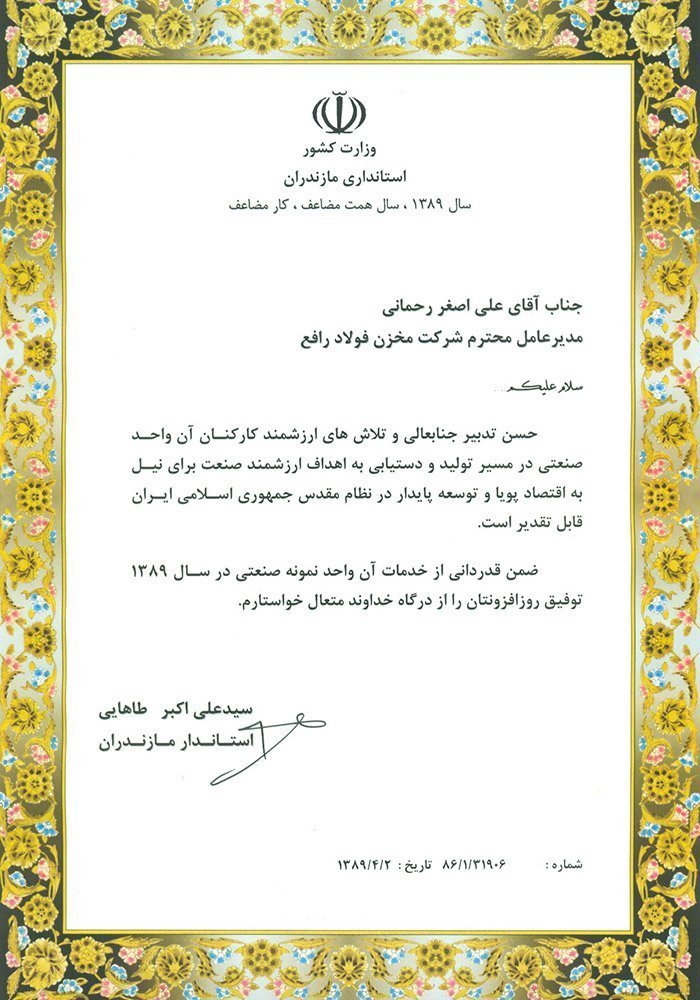 وزارت کشور
استانداری مازندران
سال ۱۳۸۹ ، سال همت مضاعف ، کار مضاعف
جناب آقای علی اصغر رحمانی
مدیرعامل محترم شرکت مخزن فولاد رافع
سلام علیکم...
حسن تدبیر جنابعالی و تلاش های ارزشمند کارکنان آن واحد
صنعتی در مسیر تولید و دستیابی به اهداف ارزشمند صنعت برای نیل
به اقتصاد پویا و توسعه پایدار در نظام مقدس جمهوری اسلامی ایران
قابل تقدیر است.
ضمن قدردانی از خدمات آن واحد نمونه صنعتی در سال ۱۳۸۹
توفیق روزافزونتان را از درگاه خداوند متعال خواستارم.
سیدعلی اکبر طاهایی
استاندار مازندران
شماره : ۸۶/۱/۳۱۹۰۶ تاریخ : ۱۳۸۹/۴/۲